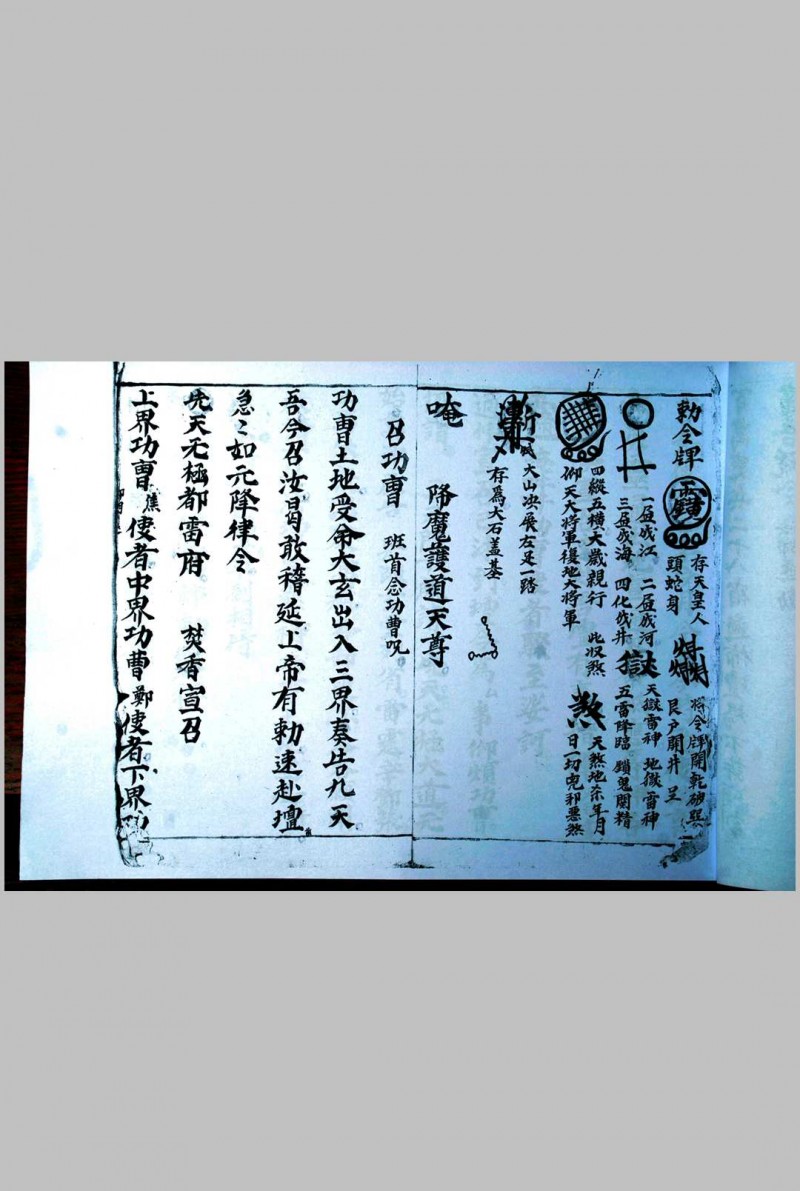 勅令牌 存天皇人
頭蛇身 將令牌開乾破巽
艮戶開井呈
一画成江 二画成河 天獄雷神 地獄雷神
三画成海 四化成井 獄 五雷降臨 鎖鬼開精
四縱五橫大歲親行 此収煞 煞 天煞地杀年月
仰天大將軍後地大將軍 日一切鬼邪惡煞
大山决展左足一踏
存爲大石盖基
唵 降魔護道天尊
召功曹 班首念功曹呪
功曹土地受命大玄出入三界奏告九天
吾今召汝曷敢稽延上帝有勅速赴壇
急〻如元降律令
先天无極都雷府 焚香宣召
上界功曹 焦 使者中界功曹 鄭 使者下界功